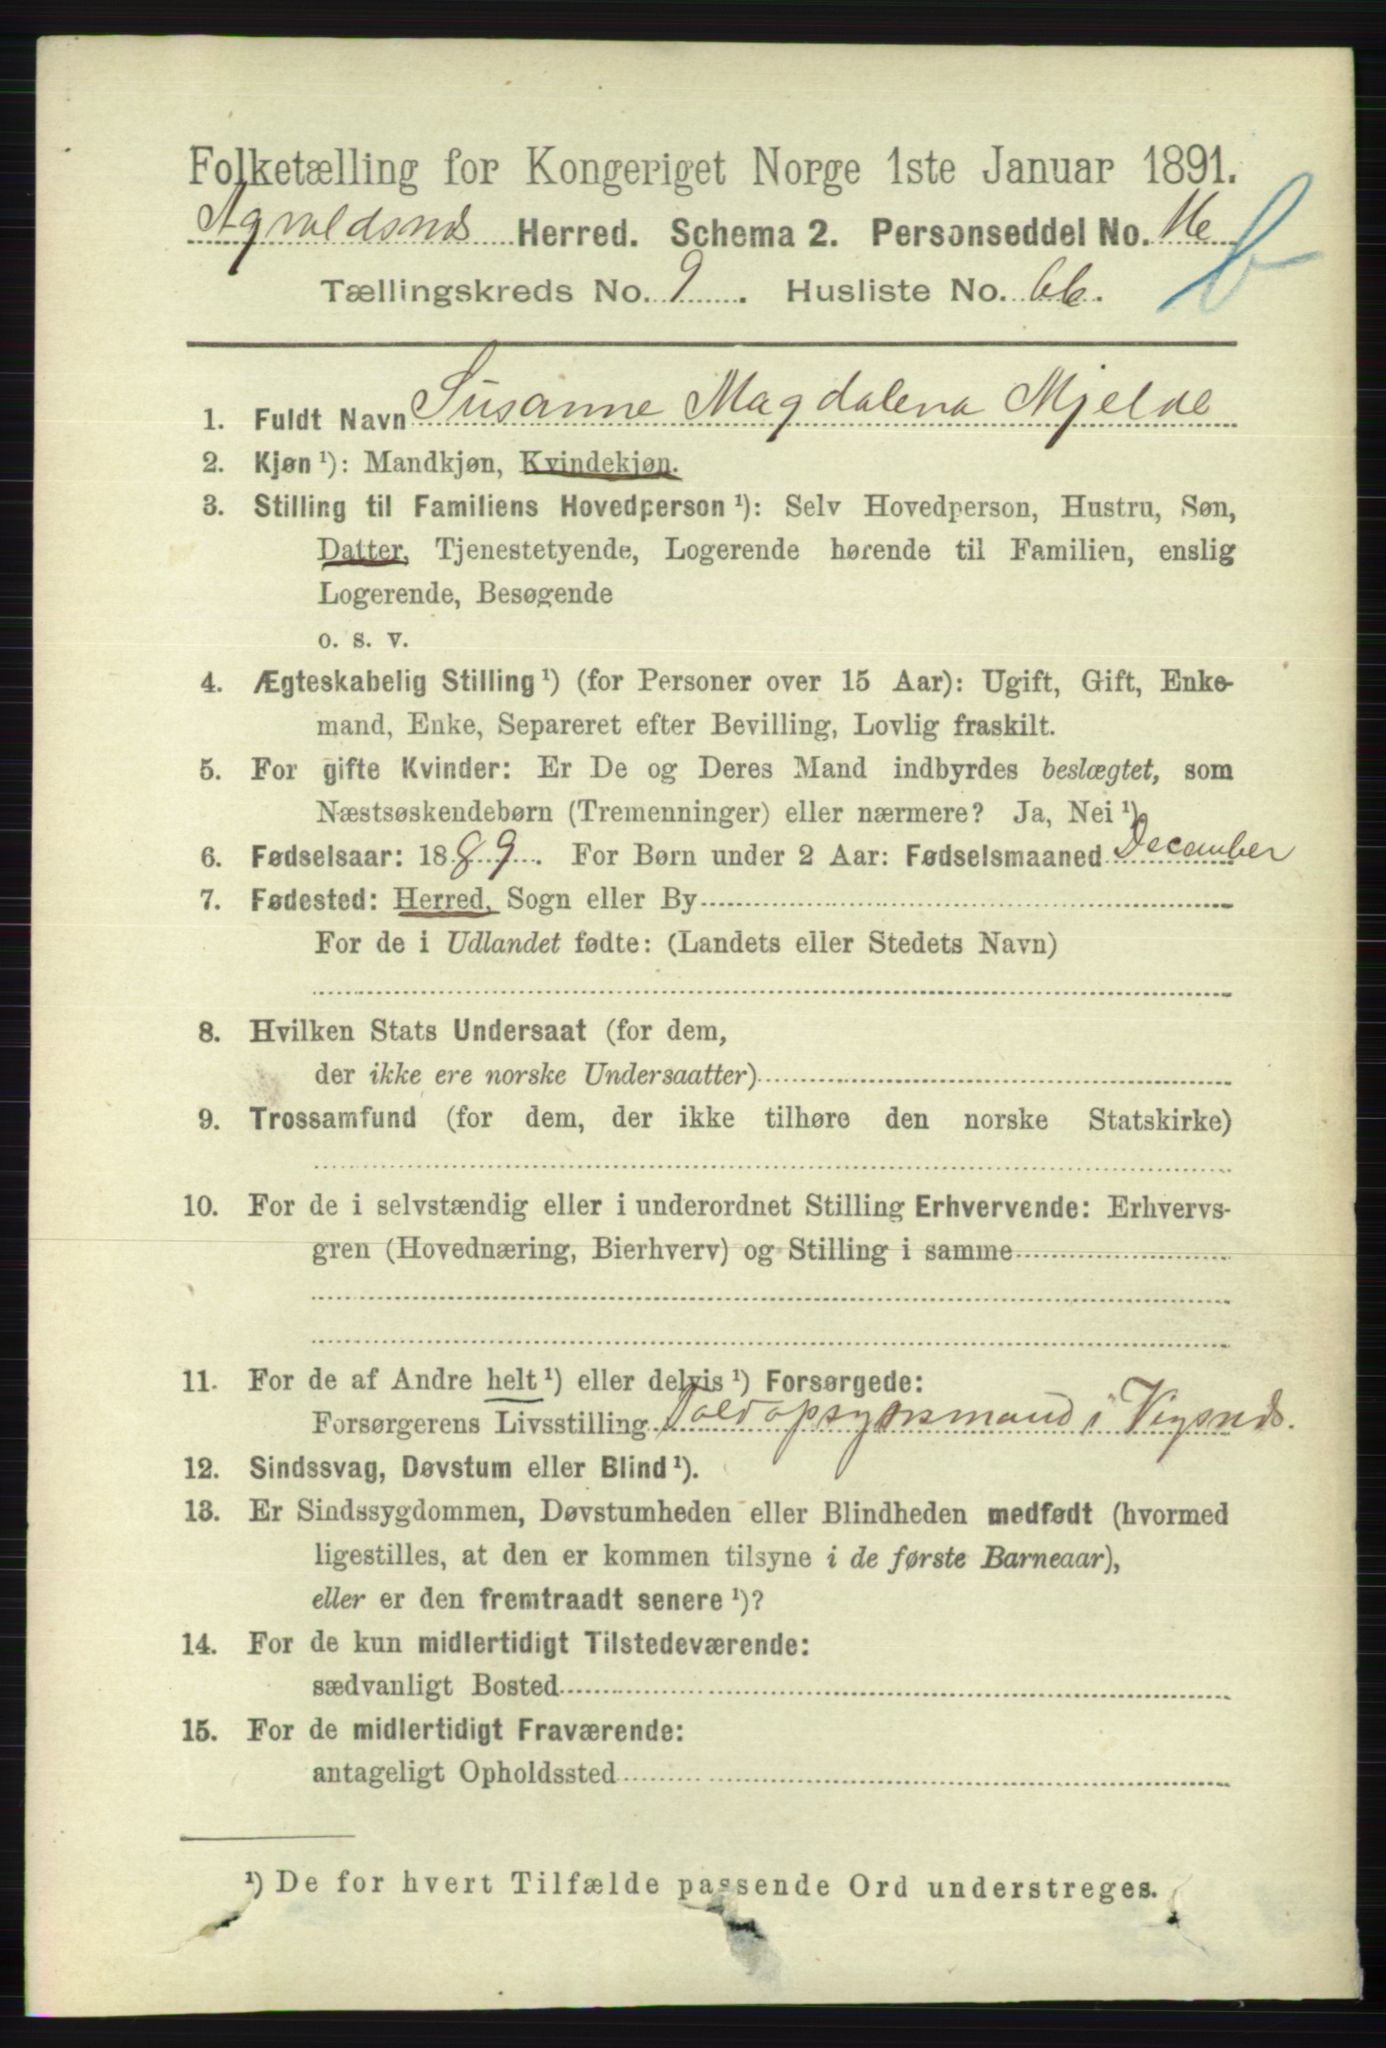 Folketælling for Kongeriget Norge 1ste Januar 1891.
Agvaldsnæs Herred. Schema 2. Personseddel No. 16
b
Tællingskreds No. 9. Husliste No. 66.
1. Fuldt Navn Susanne Magdalena Mjelde
2. Kjøn ¹): Mandkjøn, Kvindekjøn.
3. Stilling til Familiens Hovedperson ¹): Selv Hovedperson, Hustru, Søn,
Datter, Tjenestetyende, Logerende hørende til Familien, enslig
Logerende, Besøgende
o. s. v.
4. Ægteskabelig Stilling ¹) (for Personer over 15 Aar): Ugift, Gift, Enke-
mand, Enke, Separeret efter Bevilling, Lovlig fraskilt.
5. For gifte Kvinder: Er De og Deres Mand indbyrdes beslægtet, som
Næstsøskendebørn (Tremenninger) eller nærmere? Ja, Nei ¹)
6. Fødselsaar: 1889. For Børn under 2 Aar: Fødselsmaaned December
7. Fødested: Herred, Sogn eller By
For de i Udlandet fødte: (Landets eller Stedets Navn)
8. Hvilken Stats Undersaat (for dem,
der ikke ere norske Undersaatter)
9. Trossamfund (for dem, der ikke tilhøre den norske Statskirke)
10. For de i selvstændig eller i underordnet Stilling Erhvervende: Erhvervs-
gren (Hovednæring, Bierhverv) og Stilling i samme
11. For de af Andre helt ¹) eller delvis ¹) Forsørgede:
Forsørgerens Livsstilling Toldopsynsmand i Vigsnæs.
12. Sindssvag, Døvstum eller Blind ¹).
13. Er Sindssygdommen, Døvstumheden eller Blindheden medfødt (hvormed
ligestilles, at den er kommen tilsyne i de første Barneaar),
eller er den fremtraadt senere ¹)?
14. For de kun midlertidigt Tilstedeværende:
sædvanligt Bosted
15. For de midlertidigt Fraværende:
antageligt Opholdssted
¹) De for hvert Tilfælde passende Ord understreges.